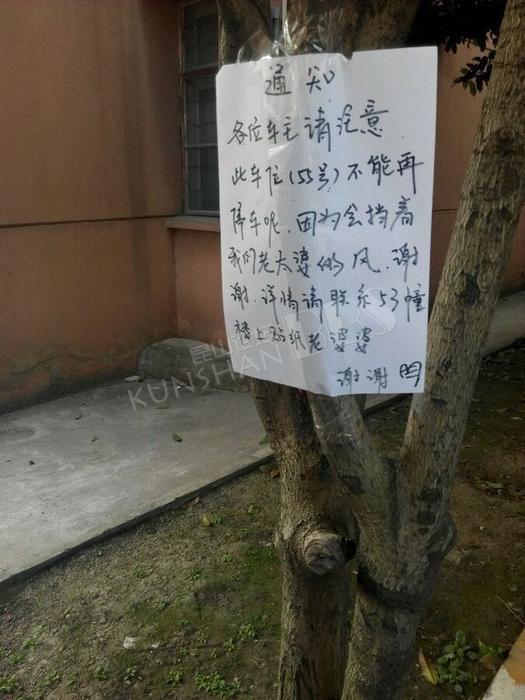 通知
各位车主请注意
此车位(55号)不能再
停车呢.因为会挡着
我们老太婆的风.谢
谢.详情请联系53幢
楼上贴纸老婆婆
谢谢
昆山
KUNSHAN BBS